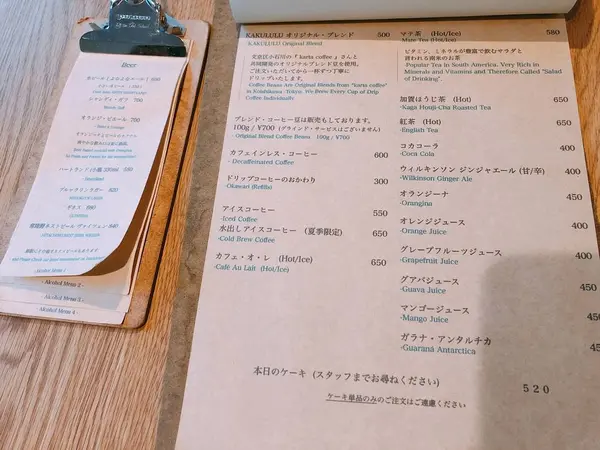 Beer
オランジ・ビエール 700
ブルックリンラガー 820
グラス 590
- Alcohol Menu 1 -
- Alcohol Menu 2 -
- Alcohol Menu 3 -
- Alcohol Menu 4 -
KAKULULU オリジナル・ブレンド 500
KAKULULU Original Blend
文京区小石川の『karta coffee』さんと
共同開発のオリジナルブレンド豆を使用。
ご注文いただいてから一杯ずつ丁寧に
ドリップいたします。
Coffee Beans Are Original Blends from "karta coffee"
in Koishikawa /Tokyo. We Brew Every Cup of Drip
Coffee Individually
ブレンド・コーヒー豆は販売もしております。
100g / ¥700 (グラインド・サービスはございません)
-Original Blend Coffee Beans 100g / ¥700
カフェインレス・コーヒー 600
-Decaffeinated Coffee
ドリップコーヒーのおかわり 300
-Okawari (Refills)
アイスコーヒー 550
-Iced Coffee
水出しアイスコーヒー (夏季限定) 650
-Cold Brew Coffee
カフェ・オ・レ (Hot/Ice) 650
-Café Au Lait (Hot/Ice)
マテ茶 (Hot/Ice) 580
Mate Tea (Hot/Ice)
ビタミン、ミネラルが豊富で飲むサラダと
言われる南米のお茶
-Popular Tea in South America. Very Rich in
Minerals and Vitamins and Therefore Called "Salad
of Drinking".
加賀ほうじ茶 (Hot) 650
-Kaga Houji-Cha Roasted Tea
紅茶 (Hot) 650
-English Tea
コカコーラ 400
-Coca Cola
ウィルキンソン ジンジャエール (甘/辛) 400
-Wilkinson Ginger Ale
オランジーナ 450
-Orangina
オレンジジュース 400
-Orange Juice
グレープフルーツジュース 400
-Grapefruit Juice
グアバジュース 450
-Guava Juice
マンゴージュース 450
-Mango Juice
ガラナ・アンタルチカ
-Guaraná Antarctica
本日のケーキ (スタッフまでお尋ねください) 520
ケーキ単品のみのご注文はご遠慮ください